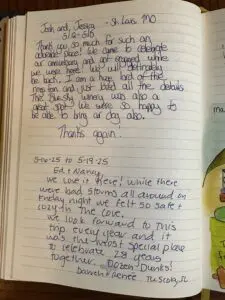 Josh and Jessica - St. Louis MO
5/12-5/15
Thank you so much for such an
adorable place! We came to celebrate
our anniversary and got engaged while
we were here. We will definately
be back. I am a huge lord of the
rings fan and just loved all the details
The Blueskj winery was also a
great sight. We were so happy to
be able to bring our dog also.
Thanks again!
5-16-25 to 5-19-25
Ed + Nancy,
We love it there! While there
were bad storms all around on
Friday night we felt so safe +
cozy in the Cove.
We look forward to this
trip every year and it
was the most special place
to celebrate 28 years
together. Dozen Dunks!
Darren + Renee Tuscola, IL